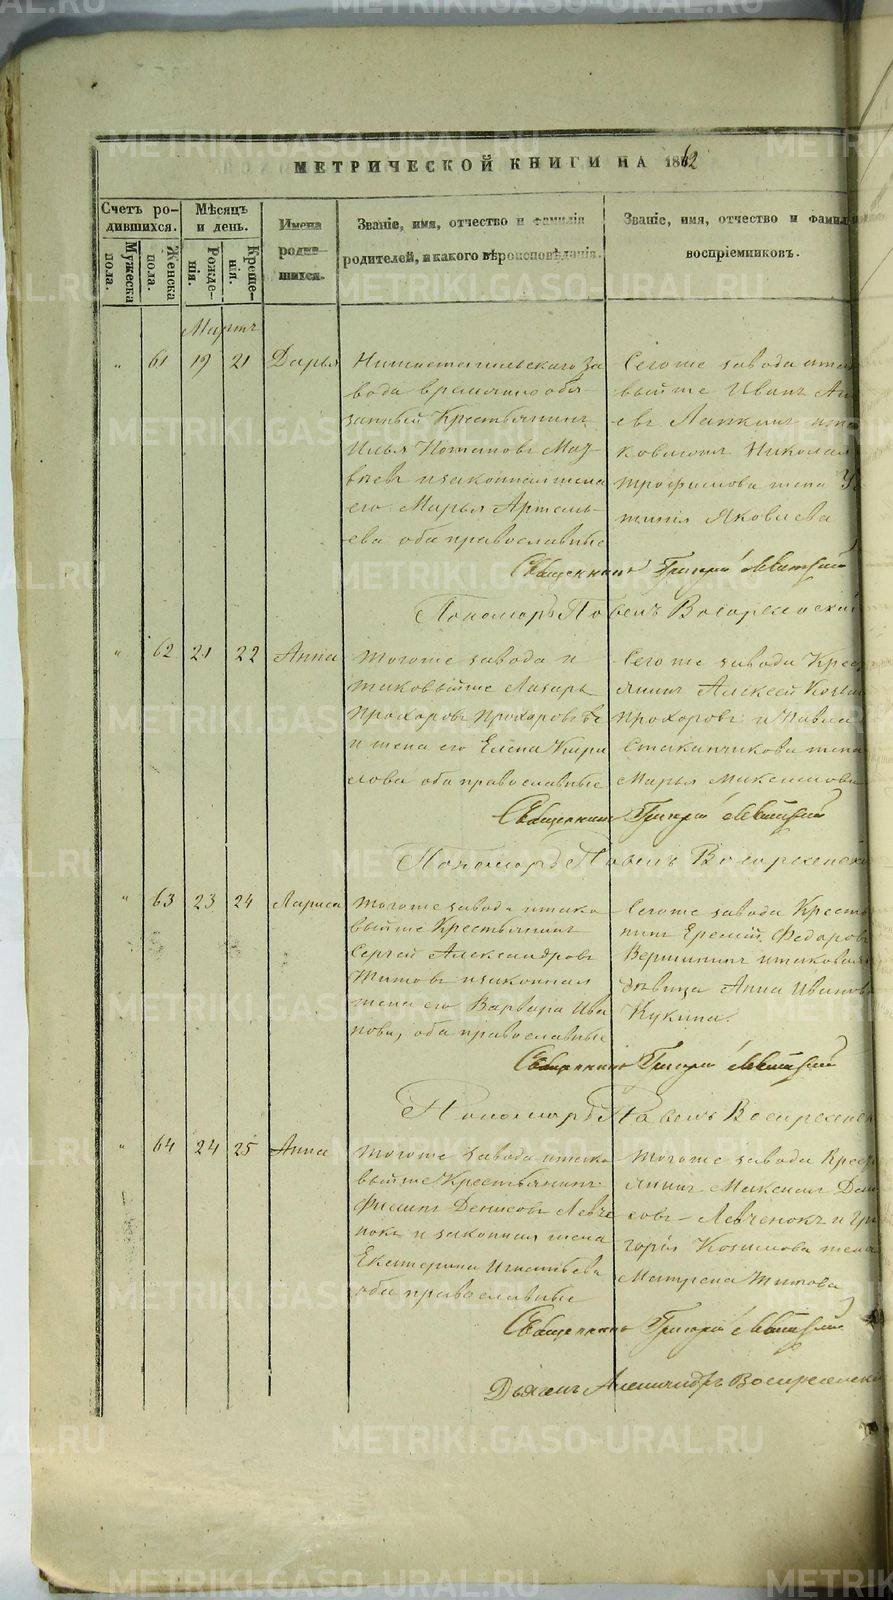 МЕТРИЧЕСКОЙ КНИГИ НА 1862
Счетъ родившихся.
Мужеска пола.
Женска пола.
Мѣсяцъ и день.
Рожденія.
Крещенія.
Имена родившихся.
Званіе, имя, отчество и фамилія
родителей, и какого вѣроисповѣданія.
Званіе, имя, отчество и фамил
воспріемниковъ.
Мартъ
" 61 19 21 Дарья
Нижнетагильскаго за
вода временно обя-
занный Крестьянинъ
Илья Потаповъ
и законная жена
его Марья Артемь-
ева оба православные
Сегоже завода
Иванъ
Лапкинъ
Николая
Трофимова жена
Яковлева
Священникъ Григорій Левитскій
Пономарь Павелъ Воскресенскій
" 62 21 22 Анна
Тогоже завода и
таковыйже Лазарь
Прохоровъ Прохоровъ
и жена его Елена Кири
лова оба православные
Сегоже завода Крес
янинъ Алексей
Прохоровъ и Павла
Стаканчикова жена
Марья Максимова
Священникъ Григорій Левитскій
Пономарь Павелъ Воскресенскі
" 63 23 24 Лариса
Тогоже завода итако
выйже Крестьянинъ
Сергей Александровъ
Титовъ и законная
жена его Варвара Ива
нова, оба православные
Сегоже завода Крестья
нинъ Еремій Федоровъ
Вершининъ итаковая
дѣвица Анна Иванов
Кукина.
Священникъ Григорій Левитскій
Пономарь Павелъ Воскресенск
" 64 24 25 Анна
Тогоже завода итако
выйже Крестьянинъ
Филипъ Денисовъ Левче
нокъ и законная жена
Екатерина Игнатьева
оба православные
Тогоже завода Крест
янинъ Максимъ Дени
совъ Левченокъ и Гри
горія Козшлова жена
Матрена Титова
Священникъ Григорій Левитскій
Дьяконъ Александръ Воскресенскі
METRIKI.GASO-URAL.RU